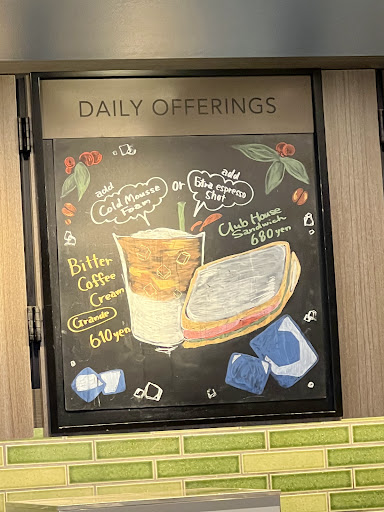 DAILY OFFERINGS
add
Cold Mousse
Foam
or
add
Extra espresso
shot
Club House
Sandwich
680 yen
Bitter
Coffee
Cream
Grande
610 yen